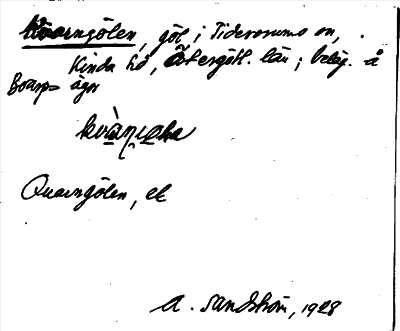 Kvarngölen, göl i Tidersrums sn,
Kinda hd, Östergötl. län; beläg. å
Boarps ägor
Quarngölen, ek
A. Sandström, 1928